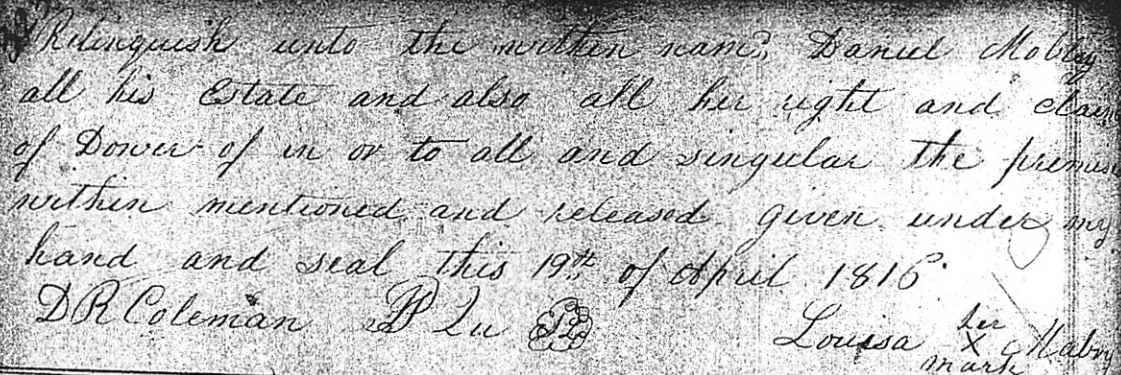 Relinquish unto the within namd Daniel Mobley
all his Estate and also all her right and claim
of Dower of in or to all and singular the premises
within mentioned and released given under my
hand and seal this 19th of April 1816
D R Coleman J Qu
Louisa her X mark Mabry